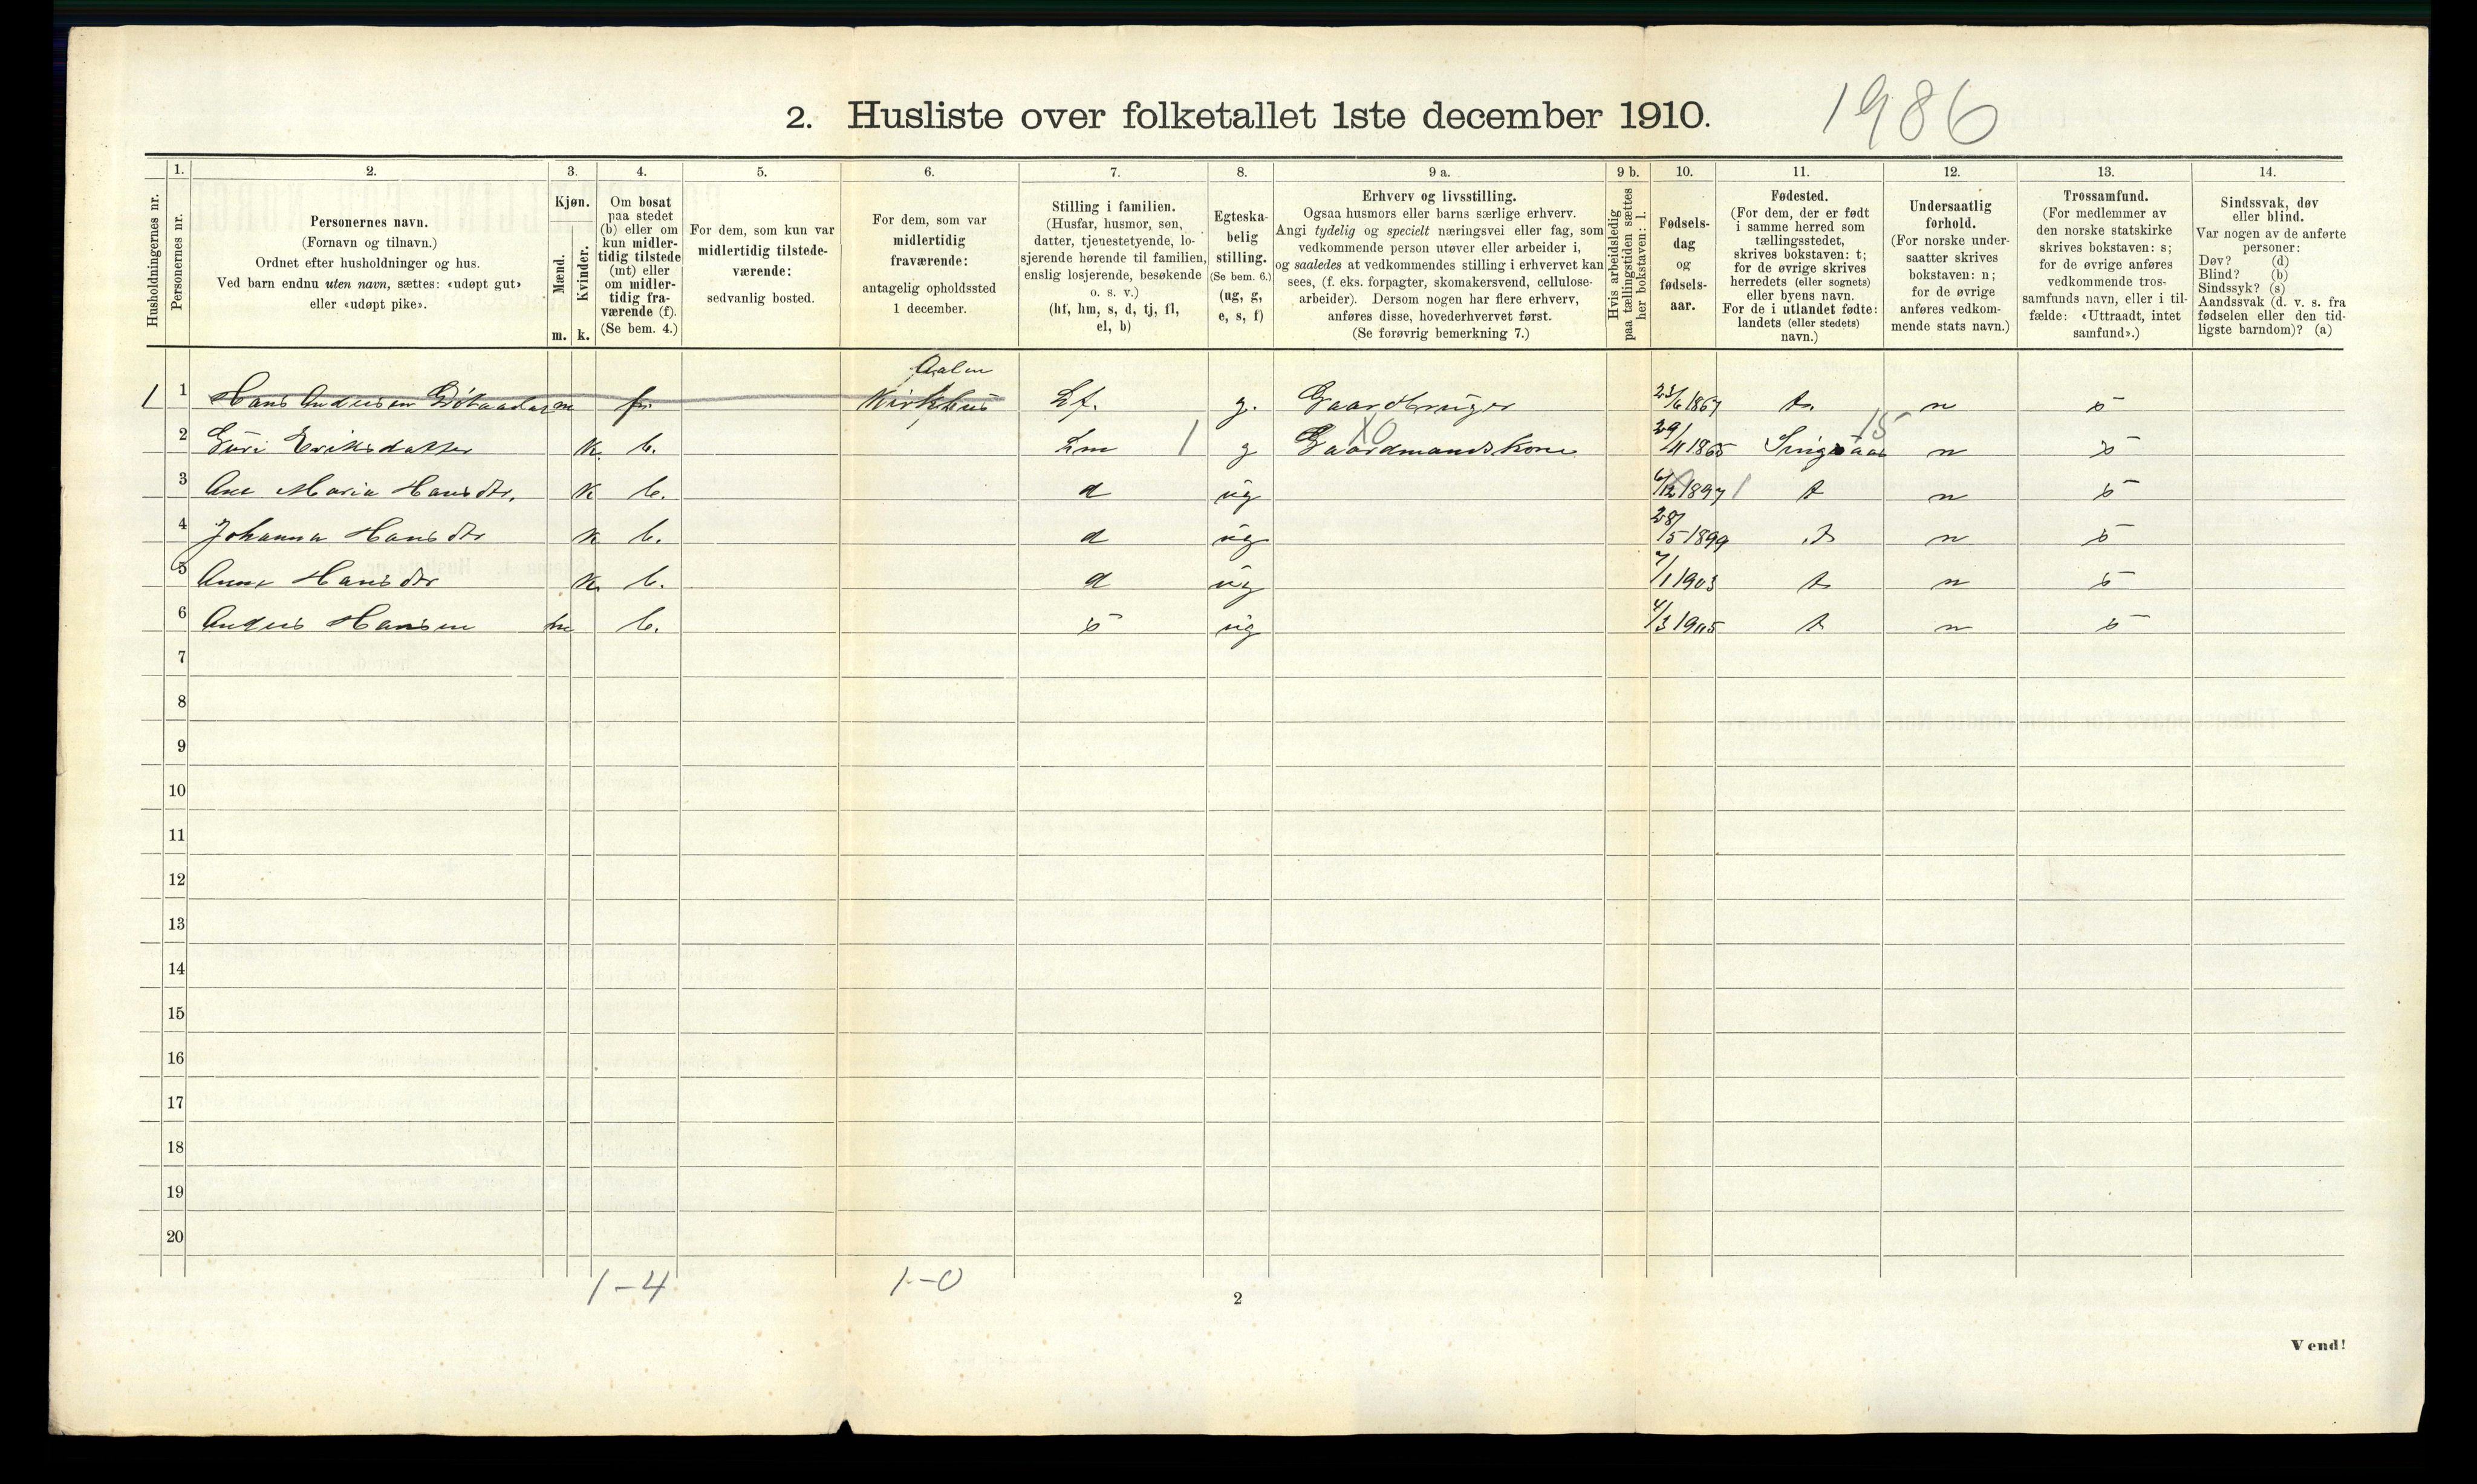 2. Husliste over folketallet 1ste december 1910.
1986
1. 2. 3. 4. 5. 6. 7. 8. 9 a. 9 b. 10. 11. 12. 13. 14.
Husholdningernes nr.
Personernes nr.
Personernes navn.
(Fornavn og tilnavn.)
Ordnet efter husholdninger og hus.
Ved barn endnu uten navn, sættes: «udøpt gut»
eller «udøpt pike».
Kjøn.
Mænd.
Kvinder.
m. k.
Om bosat
paa stedet
(b) eller om
kun midler-
tidig tilstede
(mt) eller
om midler-
tidig fra-
værende (f).
(Se bem. 4.)
For dem, som kun var
midlertidig tilstede-
værende:
sedvanlig bosted.
For dem, som var
midlertidig
fraværende:
antagelig opholdssted
1 december.
Stilling i familien.
(Husfar, husmor, søn,
datter, tjenestetyende, lo-
sjerende hørende til familien,
enslig losjerende, besøkende
o. s. v.)
(hf, hm, s, d, tj, fl,
el, b)
Egteska-
belig
stilling.
(Se bem. 6.)
(ug, g,
e, s, f)
Erhverv og livsstilling.
Ogsaa husmors eller barns særlige erhverv.
Angi tydelig og specielt næringsvei eller fag, som
vedkommende person utøver eller arbeider i,
og saaledes at vedkommendes stilling i erhvervet kan
sees, (f. eks. forpagter, skomakersvend, cellulose-
arbeider). Dersom nogen har flere erhverv,
anføres disse, hovederhvervet først.
(Se forøvrig bemerkning 7.)
Hvis arbeidsledig
paa tællingstiden sættes
her bokstaven: l.
Fødsels-
dag
og
fødsels-
aar.
Fødested.
(For dem, der er født
i samme herred som
tællingsstedet,
skrives bokstaven: t;
for de øvrige skrives
herredets (eller sognets)
eller byens navn.
For de i utlandet fødte:
landets (eller stedets)
navn.)
Undersaatlig
forhold.
(For norske under-
saatter skrives
bokstaven: n;
for de øvrige
anføres vedkom-
mende stats navn.)
Trossamfund.
(For medlemmer av
den norske statskirke
skrives bokstaven: s;
for de øvrige anføres
vedkommende tros-
samfunds navn, eller i til-
fælde: «Uttraadt, intet
samfund».)
Sindssvak, døv
eller blind.
Var nogen av de anførte
personer:
Døv? (d)
Blind? (b)
Sindssyk? (s)
Aandssvak (d. v. s. fra
fødselen eller den tid-
ligste barndom)? (a)
Aalen
1 1 Hans Andersen m f. Kirkhus Hf. g. Gaardbruger 23/6 1867 t. n s
10 15
2 Guri Eriksdatter k. b. Hm 1 g Gaardmandskone 29/11 1865 Singsaas n s
3 Ane Maria Hansdtr. k b. d ug 6/12 1897 1 t n s
4 Johanna Hansdtr k b. d ug 28/5 1899 t n s
5 Anne Hansdtr k b. d ug 7/1 1903 t n s
6 Anders Hansen m b. s ug 4/3 1905 t n s
7
8
9
10
11
12
13
14
15
16
17
18
19
20
1-4 1-0
2
Vend!